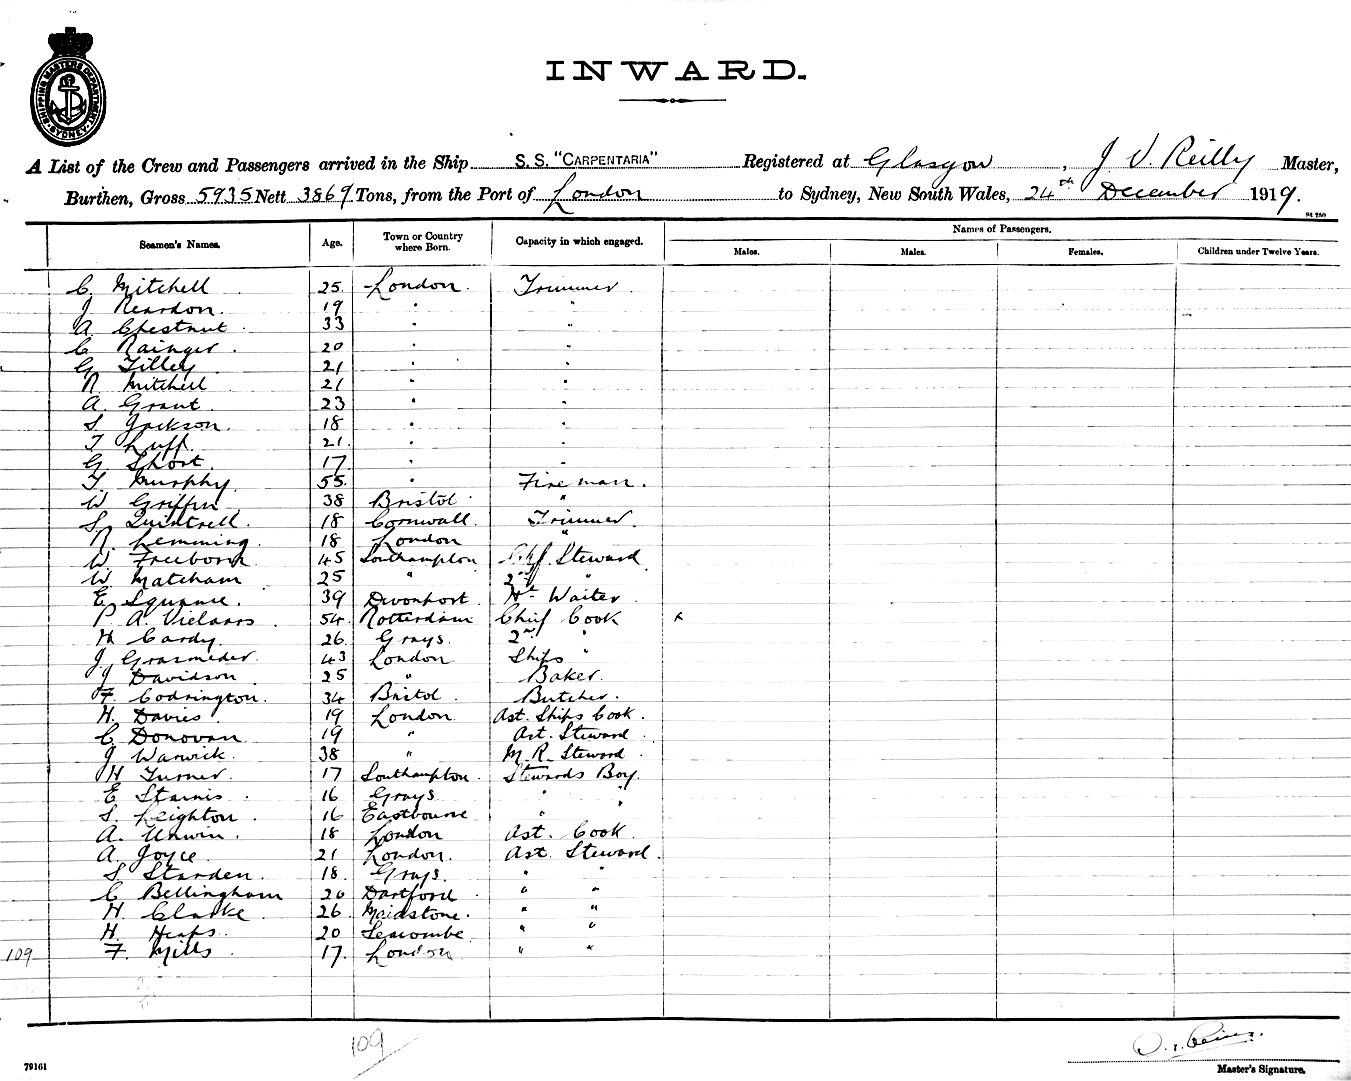 SHIPPING MASTERS DEPARTMENT SYDNEY
INWARD.
A List of the Crew and Passengers arrived in the Ship S. S. "CARPENTARIA" Registered at Glasgow, J V. Reilly Master,
Burthen, Gross 5935 Nett 3869 Tons, from the Port of London to Sydney, New South Wales, 24th December 1919.
Seamen's Names. Age. Town or Country where Born. Capacity in which engaged. Names of Passengers.
Males. Males. Females. Children under Twelve Years.
C. Mitchell 25 London Trimmer
J Reardon. 19 " "
A Chestnut 33 " "
C Rainger 20 " "
G Tilley 21 " "
R Mitchell 21 " "
A Grant 23 " "
S Jackson. 18 " "
T Luff 21 " "
G Short 17 " "
T Murphy 55 " Fireman.
W Griffin 38 Bristol "
S. Quintrell 18 Cornwall Trimmer
R Lemming 18 London "
W Freeborn 45 Southampton Steward
W Matcham 25 " 2nd "
E Squance 39 Devonport Waiter
P A. Vielaars 54 Rotterdam Chief Cook x
H Cardy 26 Grays 2nd "
J. Grasmeder 43 London Ships "
J Davidson 25 " Baker
F. Codrington 34 Bristol Butcher.
H. Davies 19 London Ast. Ships Cook.
C Donovan 19 " Ast. Steward
J Warwick 38 " M. R. Steward
H Turner 17 Southampton Stewards Boy.
E Starnis 16 Grays " "
S. Leighton 16 Eastbourne " "
A. Unwin 18 London Ast. Cook
A Joyce 21 London Ast. Steward.
S Standen 18 Grays " "
C Bellingham 20 Dartford " "
H. Clarke 26 Maidstone. " "
H. Heaps 20 Seacombe " "
109 F. Mills 17 London " "
109
Master's Signature.
79161